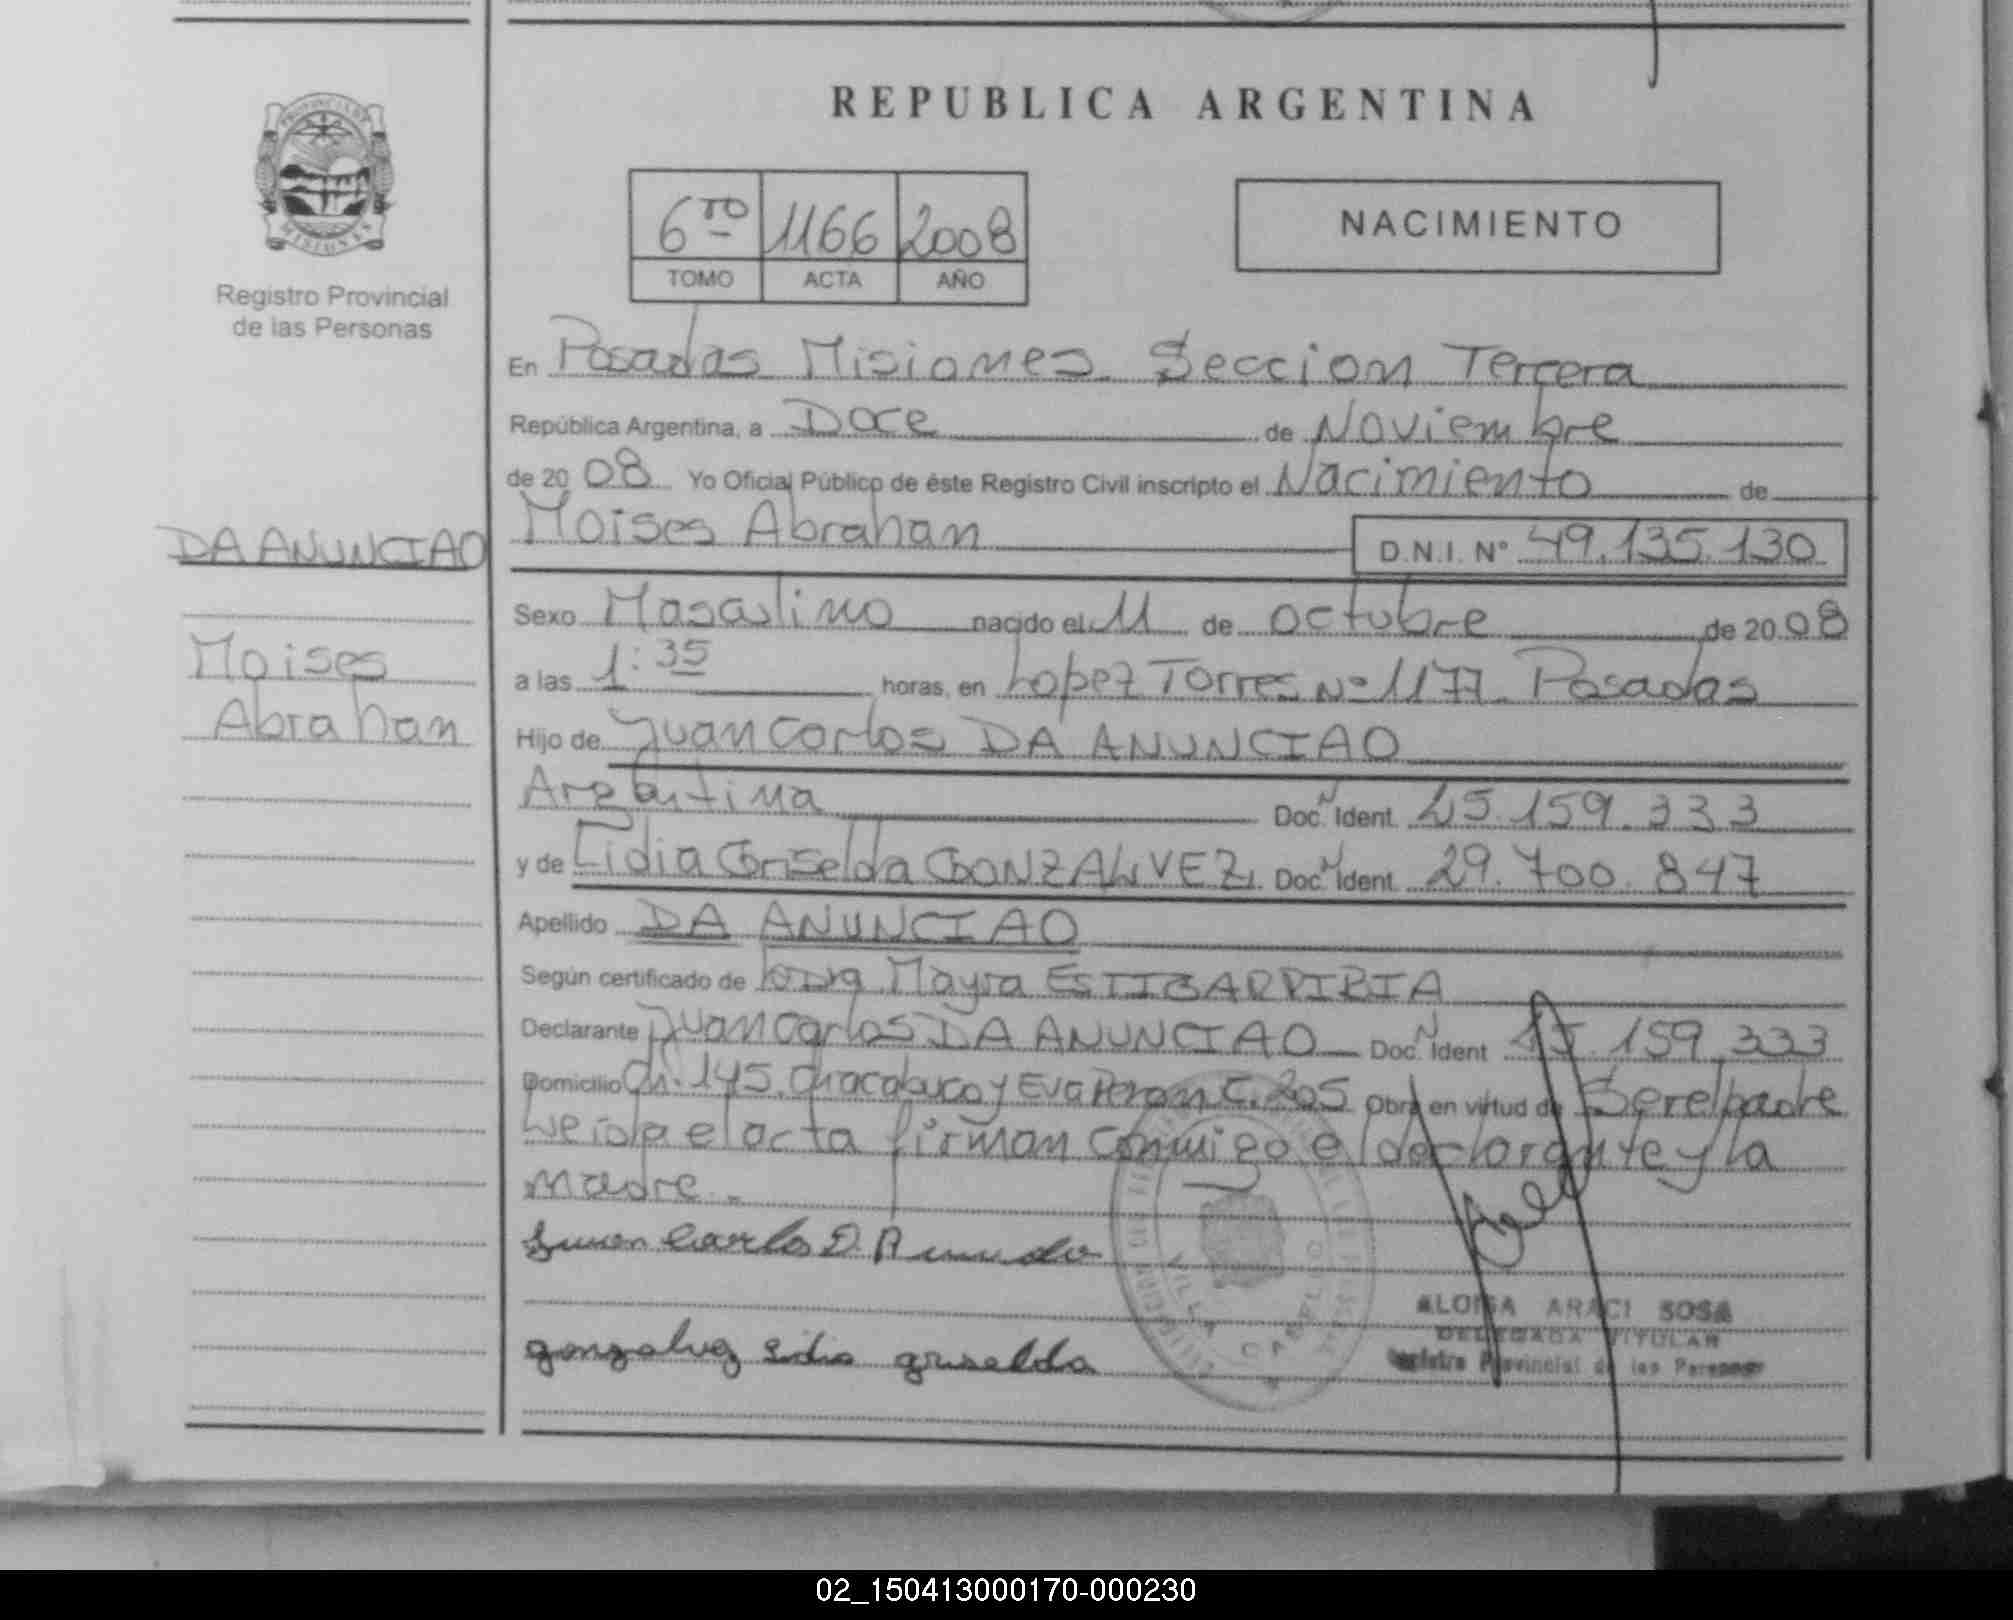 REPUBLICA ARGENTINA
PROVINCIA DE MISIONES
Registro Provincial
de las Personas
6 TO 1166 2008
TOMO ACTA AÑO
NACIMIENTO
En Posadas Misiones Seccion Tercera
República Argentina, a Doce de Noviembre
de 20 08 Yo Oficial Público de éste Registro Civil inscripto el Nacimiento de
DA ANUNCIAO
Moises Abrahan D.N.I. Nº 49.135.130
Moises
Abrahan
Sexo Masculino nacido el 11 de octubre de 20 08
a las 1:35 horas, en Lopez Torres Nº 1177 Posadas
Hijo de Juan Carlos DA ANUNCIAO
Argentina Doc. N Ident. 159.333
y de Lidia Griselda GONZALVEZ Doc. N Ident. 29.700.847
Apellido DA ANUNCIAO
Según certificado de Mayra ESTIGARRIBIA
Declarante Juan Carlos DA ANUNCIAO Doc. N Ident 159.333
Domicilio Ch. 145. Chacabuco y Eva Peron C. 205 Obra en virtud de Ser el padre
Leida el acta firman conmigo el declarante y la
madre.-
Juan Carlos D. A
gonzalvez Lidia griselda
VILLA CABELLO
ALOISA ARACI SOSA
DELEGADA TITULAR
Registro Provincial de las Personas
02_150413000170-000230